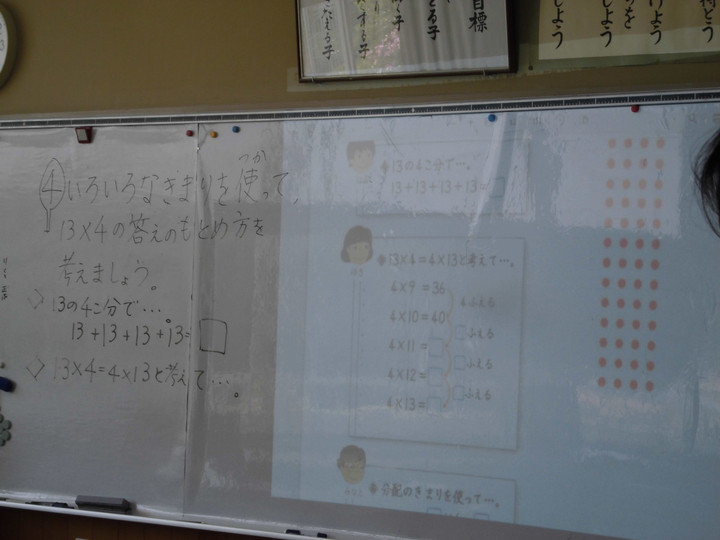 目標
とる子
する子
しよう
けよう
しよう
④いろいろなきまりを使って、
つか
13×4の答えのもとめ方を
考えましょう。
◇ 13の4こ分で…。
13+13+13+13=□
◇ 13×4=4×13と考えて…。
13の4こ分で…。
13+13+13+13=□
13×4=4×13と考えて…。
4×9=36
4ふえる
4×10=40
□ふえる
4×11=□
□ふえる
4×12=□
□ふえる
4×13=□
分配のきまりを使って…。